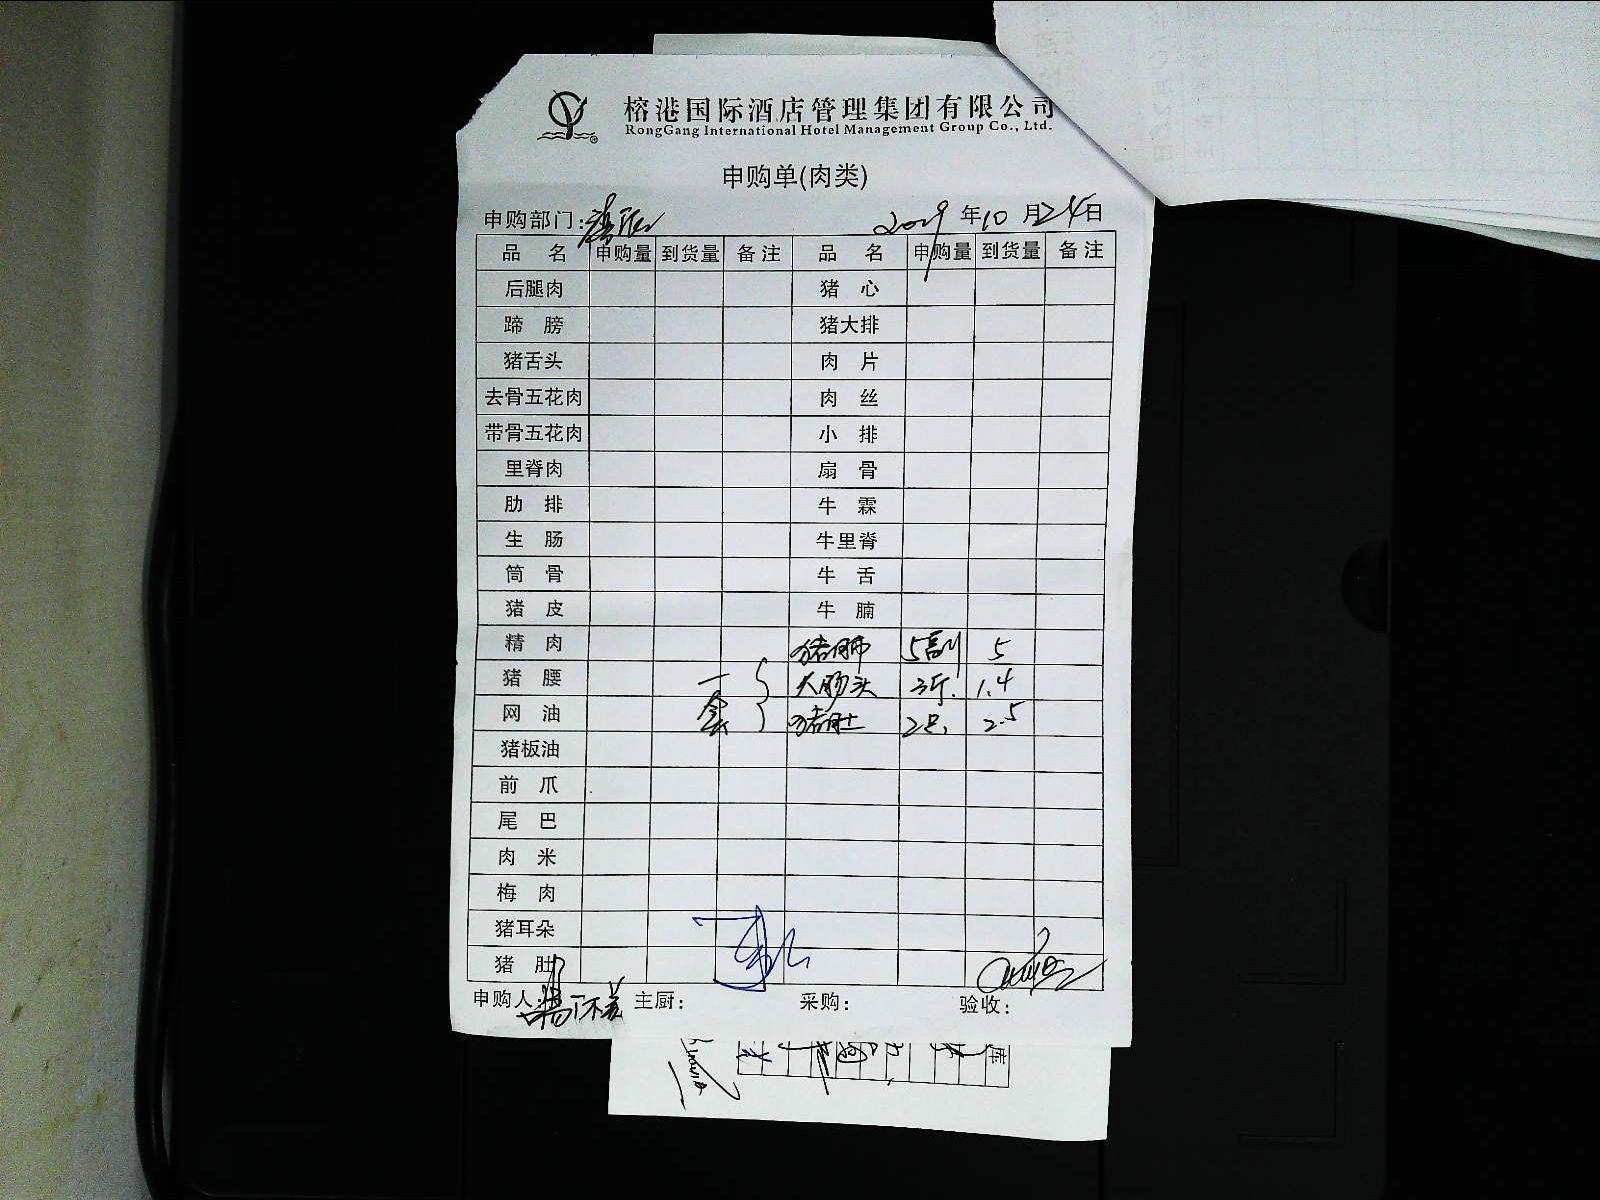 榕港国际酒店管理集团有限公司
RongGang International Hotel Management Group Co., Ltd.
申购单(肉类)
申购部门: 年10月24日
品名 申购量 到货量 备注 品名 申购量 到货量 备注
后腿肉 猪心
蹄膀 猪大排
猪舌头 肉片
去骨五花肉 肉丝
带骨五花肉 小排
里脊肉 扇骨
肋排 牛霖
生肠 牛里脊
筒骨 牛舌
猪皮 牛腩
精肉 猪肺 5副 5
猪腰 一 大肠头 3斤. 1.4
网油 套 猪肚 2只. 2.5
猪板油
前爪
尾巴
肉米
梅肉
猪耳朵
猪肚
申购人: 主厨: 采购: 验收:
库